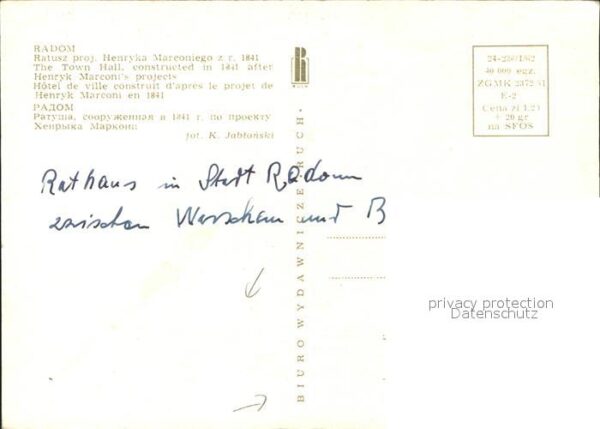 RADOM
Ratusz proj. Henryka Marconiego z r. 1841
The Town Hall, constructed in 1841 after
Henryk Marconi's projects
Hôtel de ville construit d'apres le projet de
Henryk Marconi en 1841
РАДОМ
Ратуша, сооруженная в 1841 г. по проекту
Хенрыка Маркони
fot. K. Jabłoński
RUCH
24-2360/1/62
40 000 egz.
ZGMK 2372/61
E-2
Cena zł 1.20
+ 20 gr
na SFOS
Rathaus in Stadt Radom
zwischen Warschau und B
BIURO WYDAWNICZE RUCH
privacy protection
Datenschutz